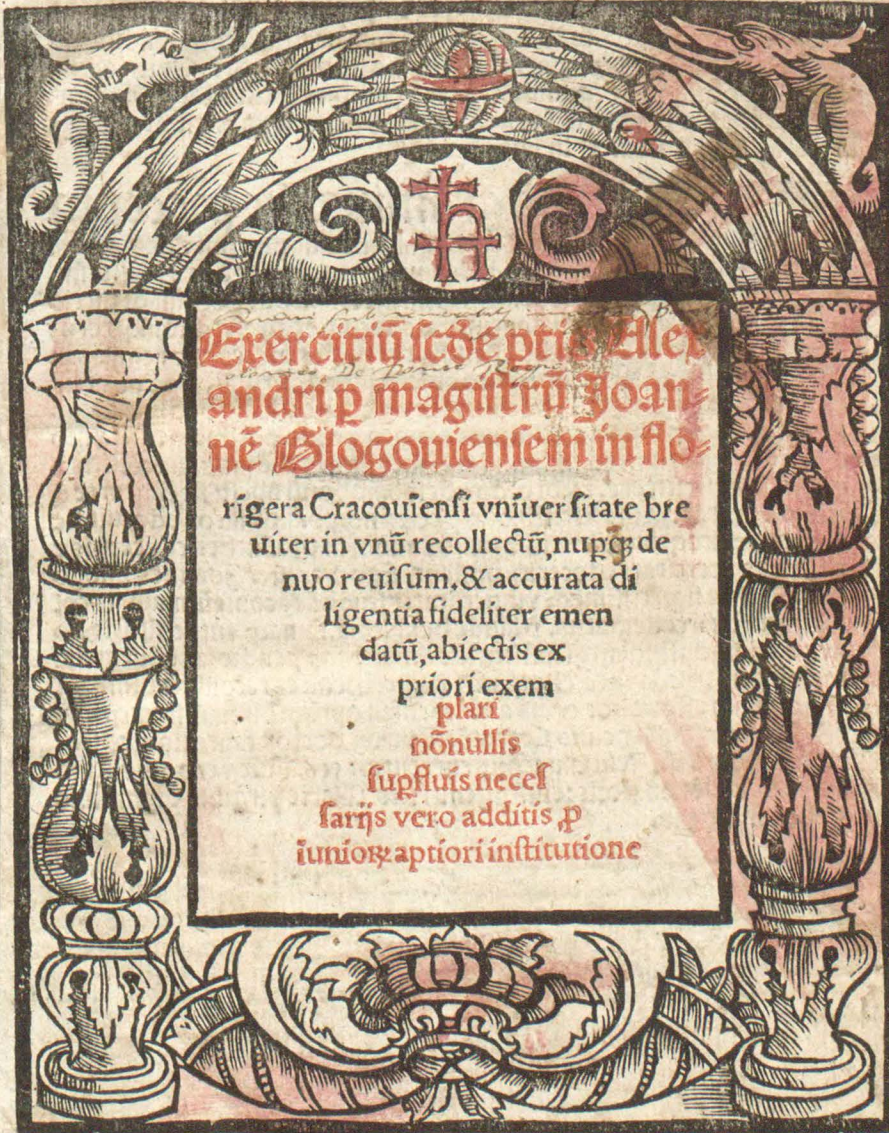 Exercitiū ſcδe ptis Alex
andri ꝑ magiſtrū Joan⸗
nē Glogouienſem in flo⸗
rigera Cracouienſi vniuer ſitate bre
uiter in vnū recollectū, nuꝑqꝫ de
nuo reuiſum. & accurata di
ligentia fideliter emen
datū, abiectis ex
priori exem
plari
nōnullis
ſuꝑfluis neceſ
ſarijs vero additis ꝓ
iunioꝝ aptiori inſtitutione